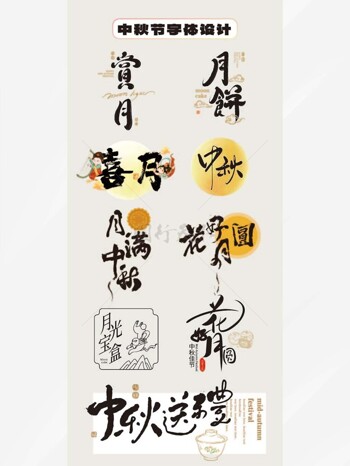 中秋节字体设计
賞月
月餅
MOON CAKE
喜月
中秋
月满中秋
花好月圓
月光宝盒
花好月圆
中秋佳节
中秋送禮
mid-autumn
festival